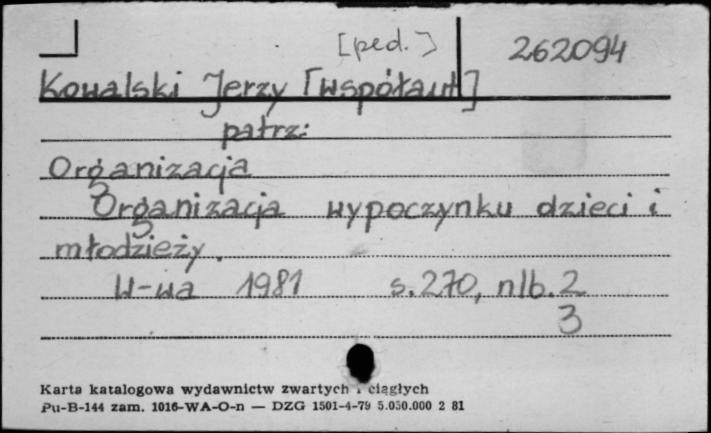 [ped.] 262094
Kowalski Jerzy [współaut]
patrz:
Organizacja
Organizacja wypoczynku dzieci i
młodzieży.
W-wa 1981 s. 270, nlb. 2
3
Karta katalogowa wydawnictw zwartych i ciągłych
Pu-B-144 zam. 1016-WA-O-n — DZG 1501-4-79 5.050.000 2 81